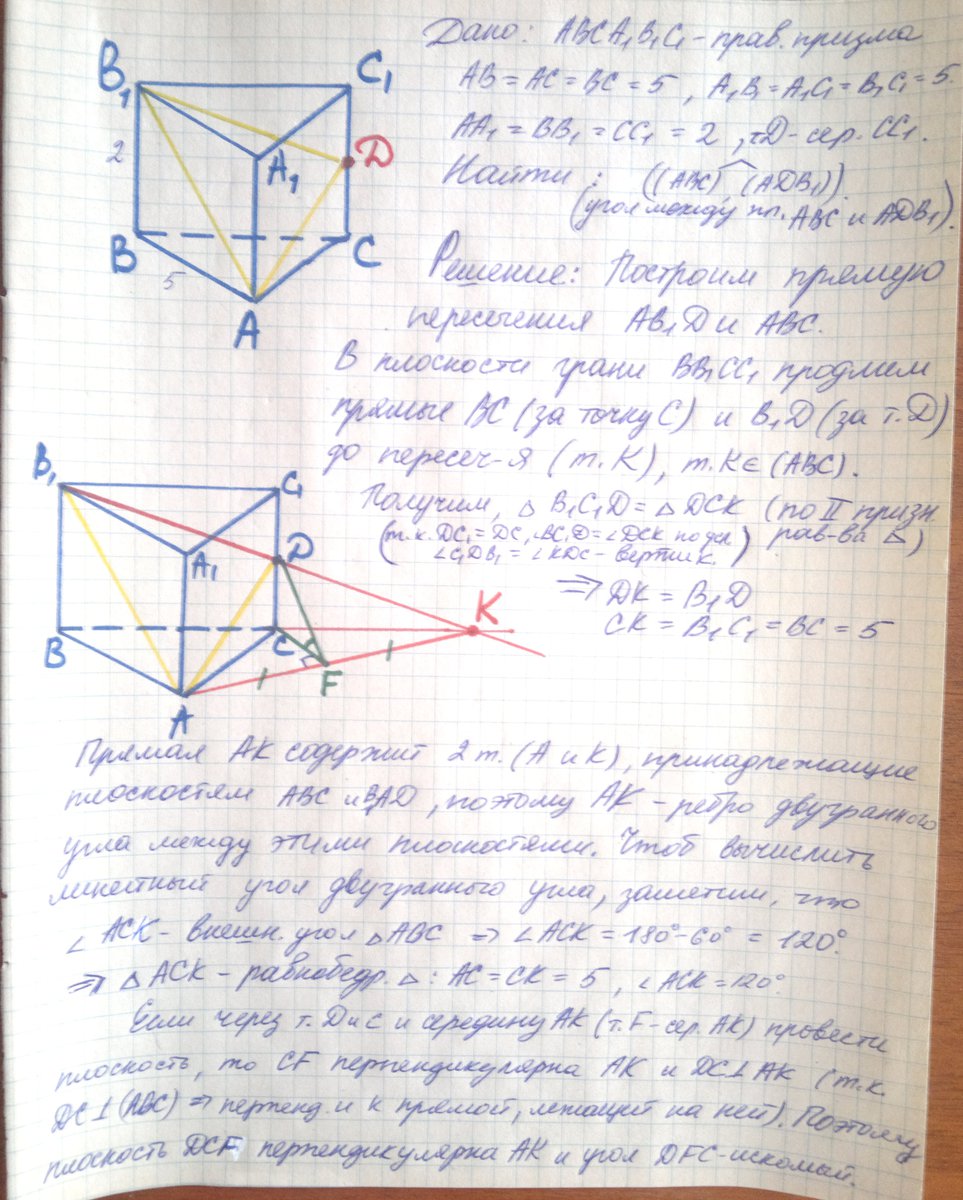 Дано: ABCA₁B₁C₁ - прав. призма
AB = AC = BC = 5 , A₁B₁ = A₁C₁ = B₁C₁ = 5.
AA₁ = BB₁ = CC₁ = 2 , т.D - сер. CC₁.
Найти : ((ABC)^(ADB₁)).
(угол между пл. ABC и ADB₁).
B₁
C₁
2
A₁
D
B
C
5
A
Решение: Построим прямую
пересечения AB₁D и ABC.
В плоскости грани BB₁CC₁ продлим
прямые BC (за точку C) и B₁D (за т.D)
до пересеч-я (т. K), т.K ∈ (ABC).
Получим, △ B₁C₁D = △ DCK (по II призн.
(т.к. DC₁ = DC, ∠B₁C₁D = ∠DCK по усл.) рав-ва △)
∠C₁DB₁ = ∠KDC - вертик.
⇒ DK = B₁D
CK = B₁C₁ = BC = 5
B₁
C₁
A₁
D
K
B
C
F
A
Прямая AK содержит 2 т. (A и K), принадлежащие
плоскостям ABC и B₁AD, поэтому AK - ребро двугранного
угла между этими плоскостями. Чтоб вычислить
линейный угол двугранного угла, заметим, что
∠ ACK - внешн. угол △ABC ⇒ ∠ACK = 180°-60° = 120°
⇒ △ ACK - равнобедр. △ : AC = CK = 5 , ∠ACK = 120°
Если через т. D и C и середину AK (т. F - сер. AK) провести
плоскость, то CF перпендикулярна AK и DC⊥AK (т.к.
DC⊥(ABC) ⇒ перпенд. и к прямой, лежащей на ней). Поэтому
плоскость DCF перпендикулярна AK и угол DFC - искомый.